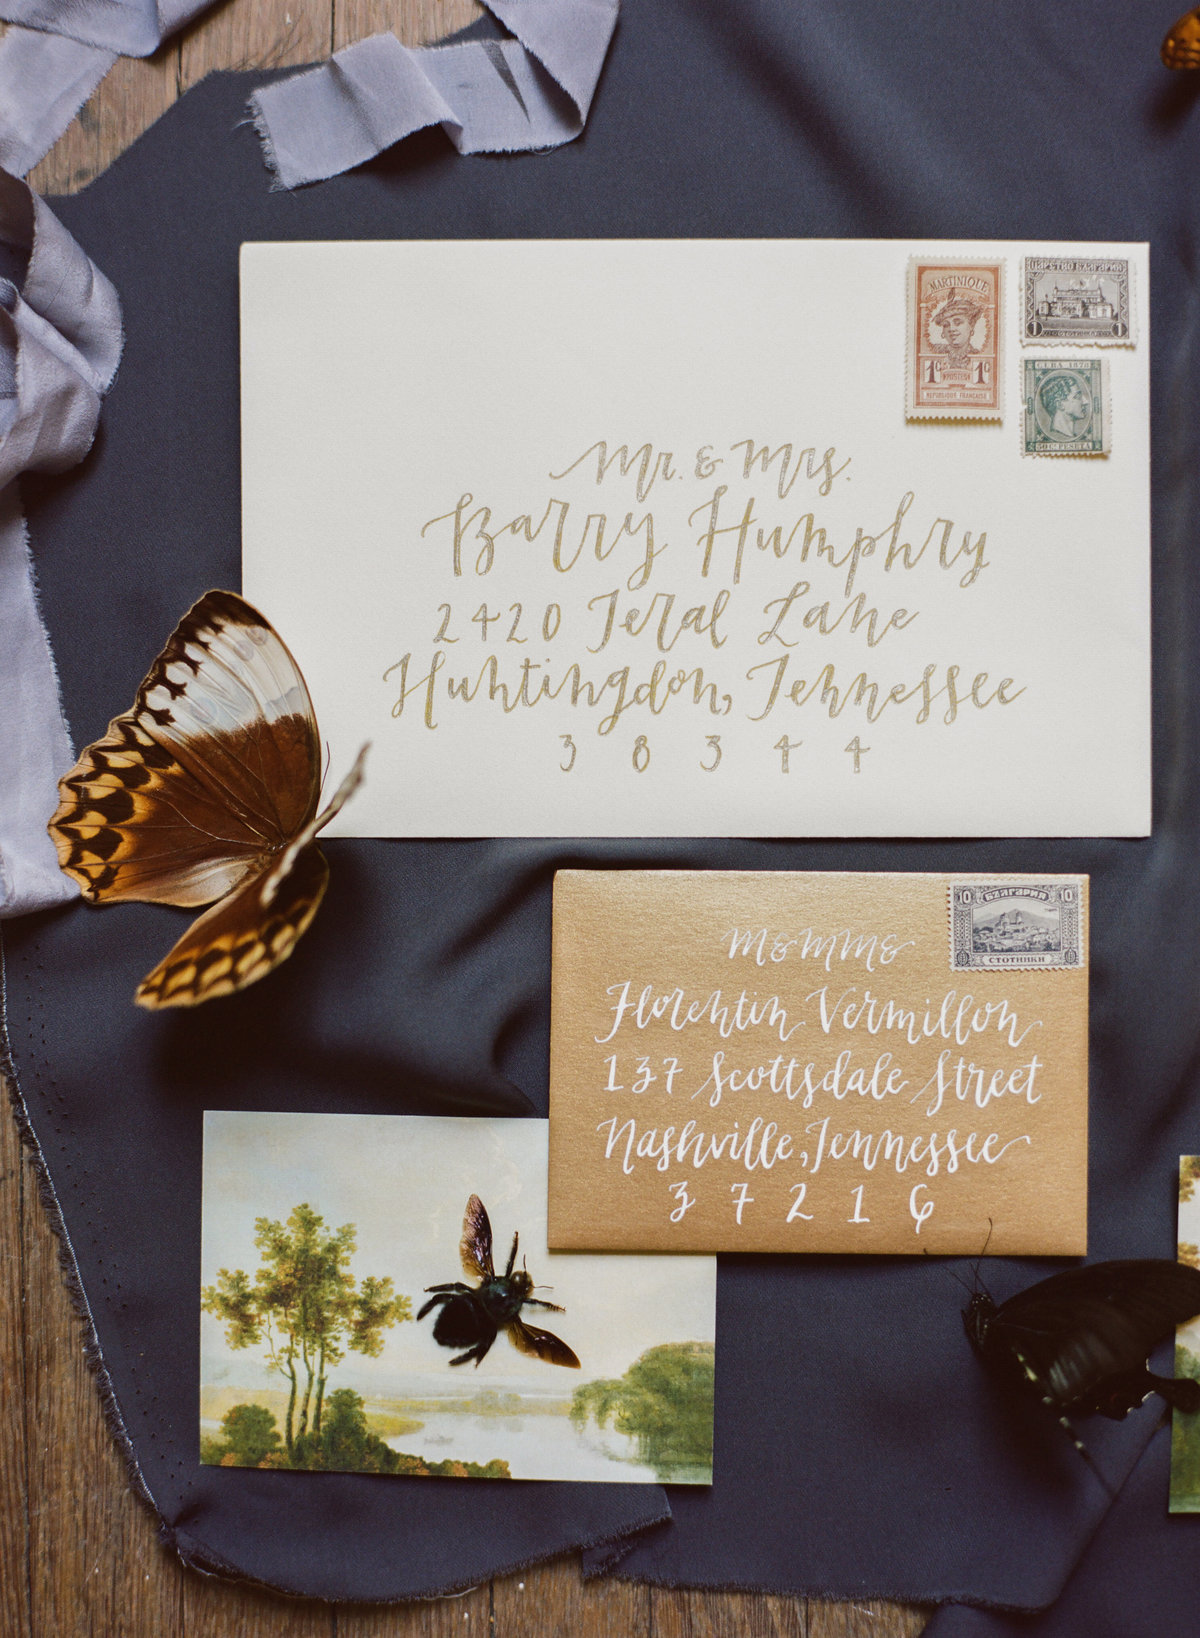 MARTINIQUE
1c 1c
POSTES
REPUBLIQUE FRANÇAISE
ЦАРСТВО БЪЛГАРИЯ
1 1
СТОТИНКА
CUBA 1878
50 Cs PESETA
Mr. & Mrs.
Barry Humphry
2420 Teral Lane
Huntingdon, Tennessee
38344
10 БЪЛГАРИЯ 10
СТОТИНКИ
M & MME
Florentin Vermillon
137 Scottsdale Street
Nashville, Tennessee
37216